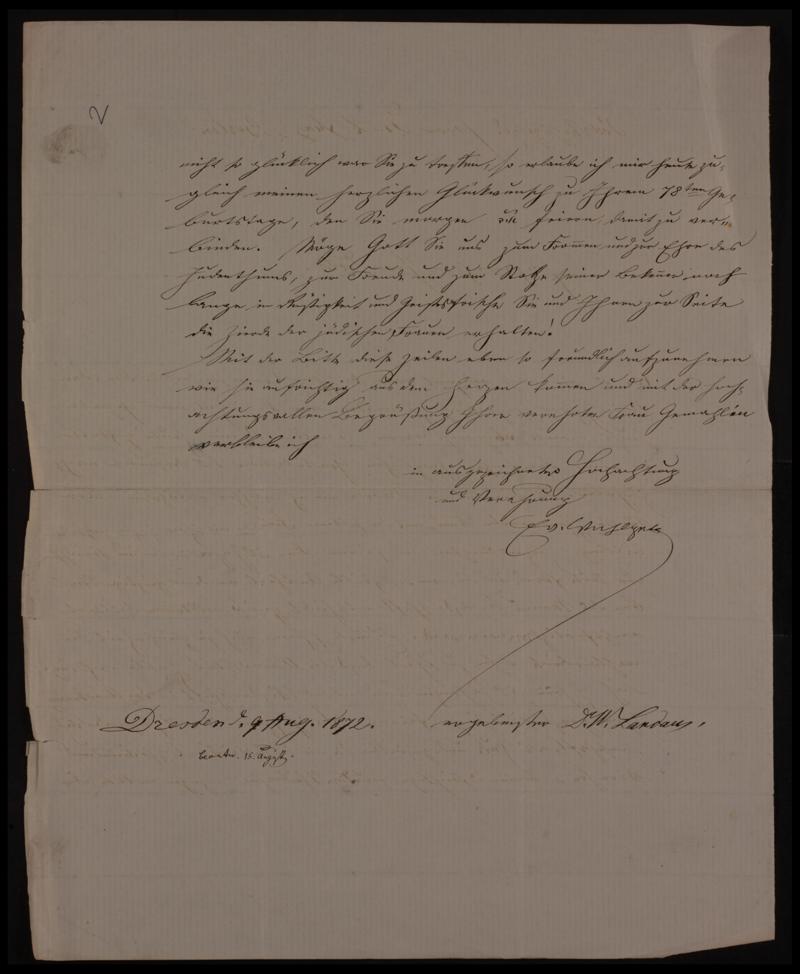 2
nicht so glücklich war Sie zu treffen, so erlaube ich mir heute zu-
gleich meinen herzlichen Glückwunsch zu Ihrem 78ten Ge-
burtstage, den Sie morgen feiern, damit zu ver-
binden. Möge Gott Sie uns zum Frommen und zur Ehre des
Judenthums, zur Freude und zum Stolze seiner Bekenner, noch
lange in Rüstigkeit und Geistesfrische Sie und Ihnen zur Seite
die Zierde der jüdischen Frauen erhalten!
Mit der Bitte diese Zeilen eben so freundlich aufzunehmen
wie sie aufrichtig aus dem Herzen kommen und mit der hoch-
achtungsvollen Begrüßung Ihrer verehrten Frau Gemahlin
verbleibe ich
in ausgezeichneter Hochachtung
und Verehrung
Ew. Wohlgeb
Dresden d. 9 Aug. 1872.
ergebenster Dr. W. Landau.
beantw. 15. August